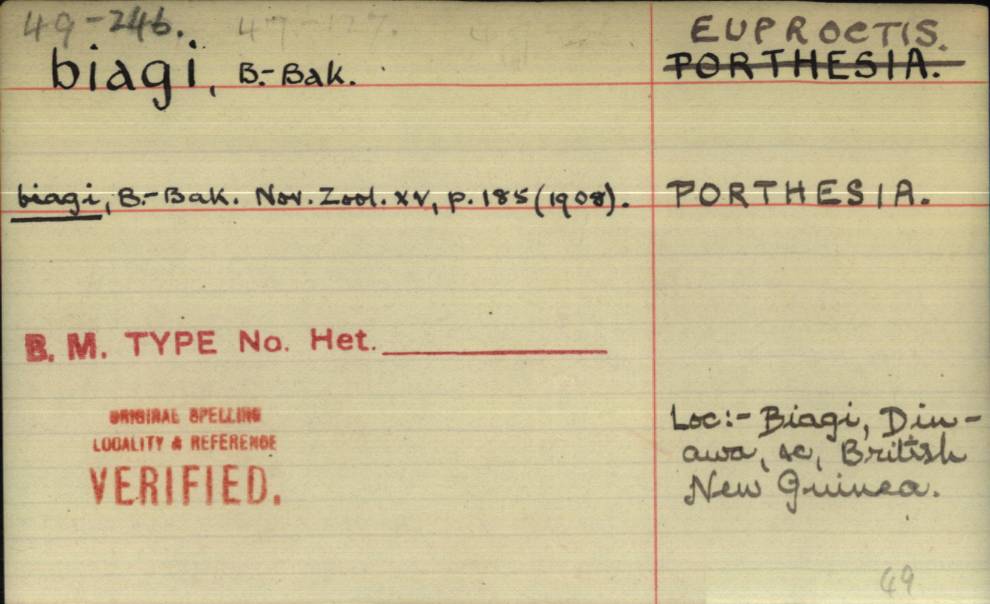 49-246.
EUPROCTIS.
biagi, B.-Bak.
PORTHESIA.
biagi, B.-Bak. Nov. Zool. XV, p. 185 (1908).
PORTHESIA.
B. M. TYPE No. Het.
ORIGINAL SPELLING
LOCALITY & REFERENCE
VERIFIED.
Loc:- Biagi, Din-
awa, &c, British
New Guinea.
49